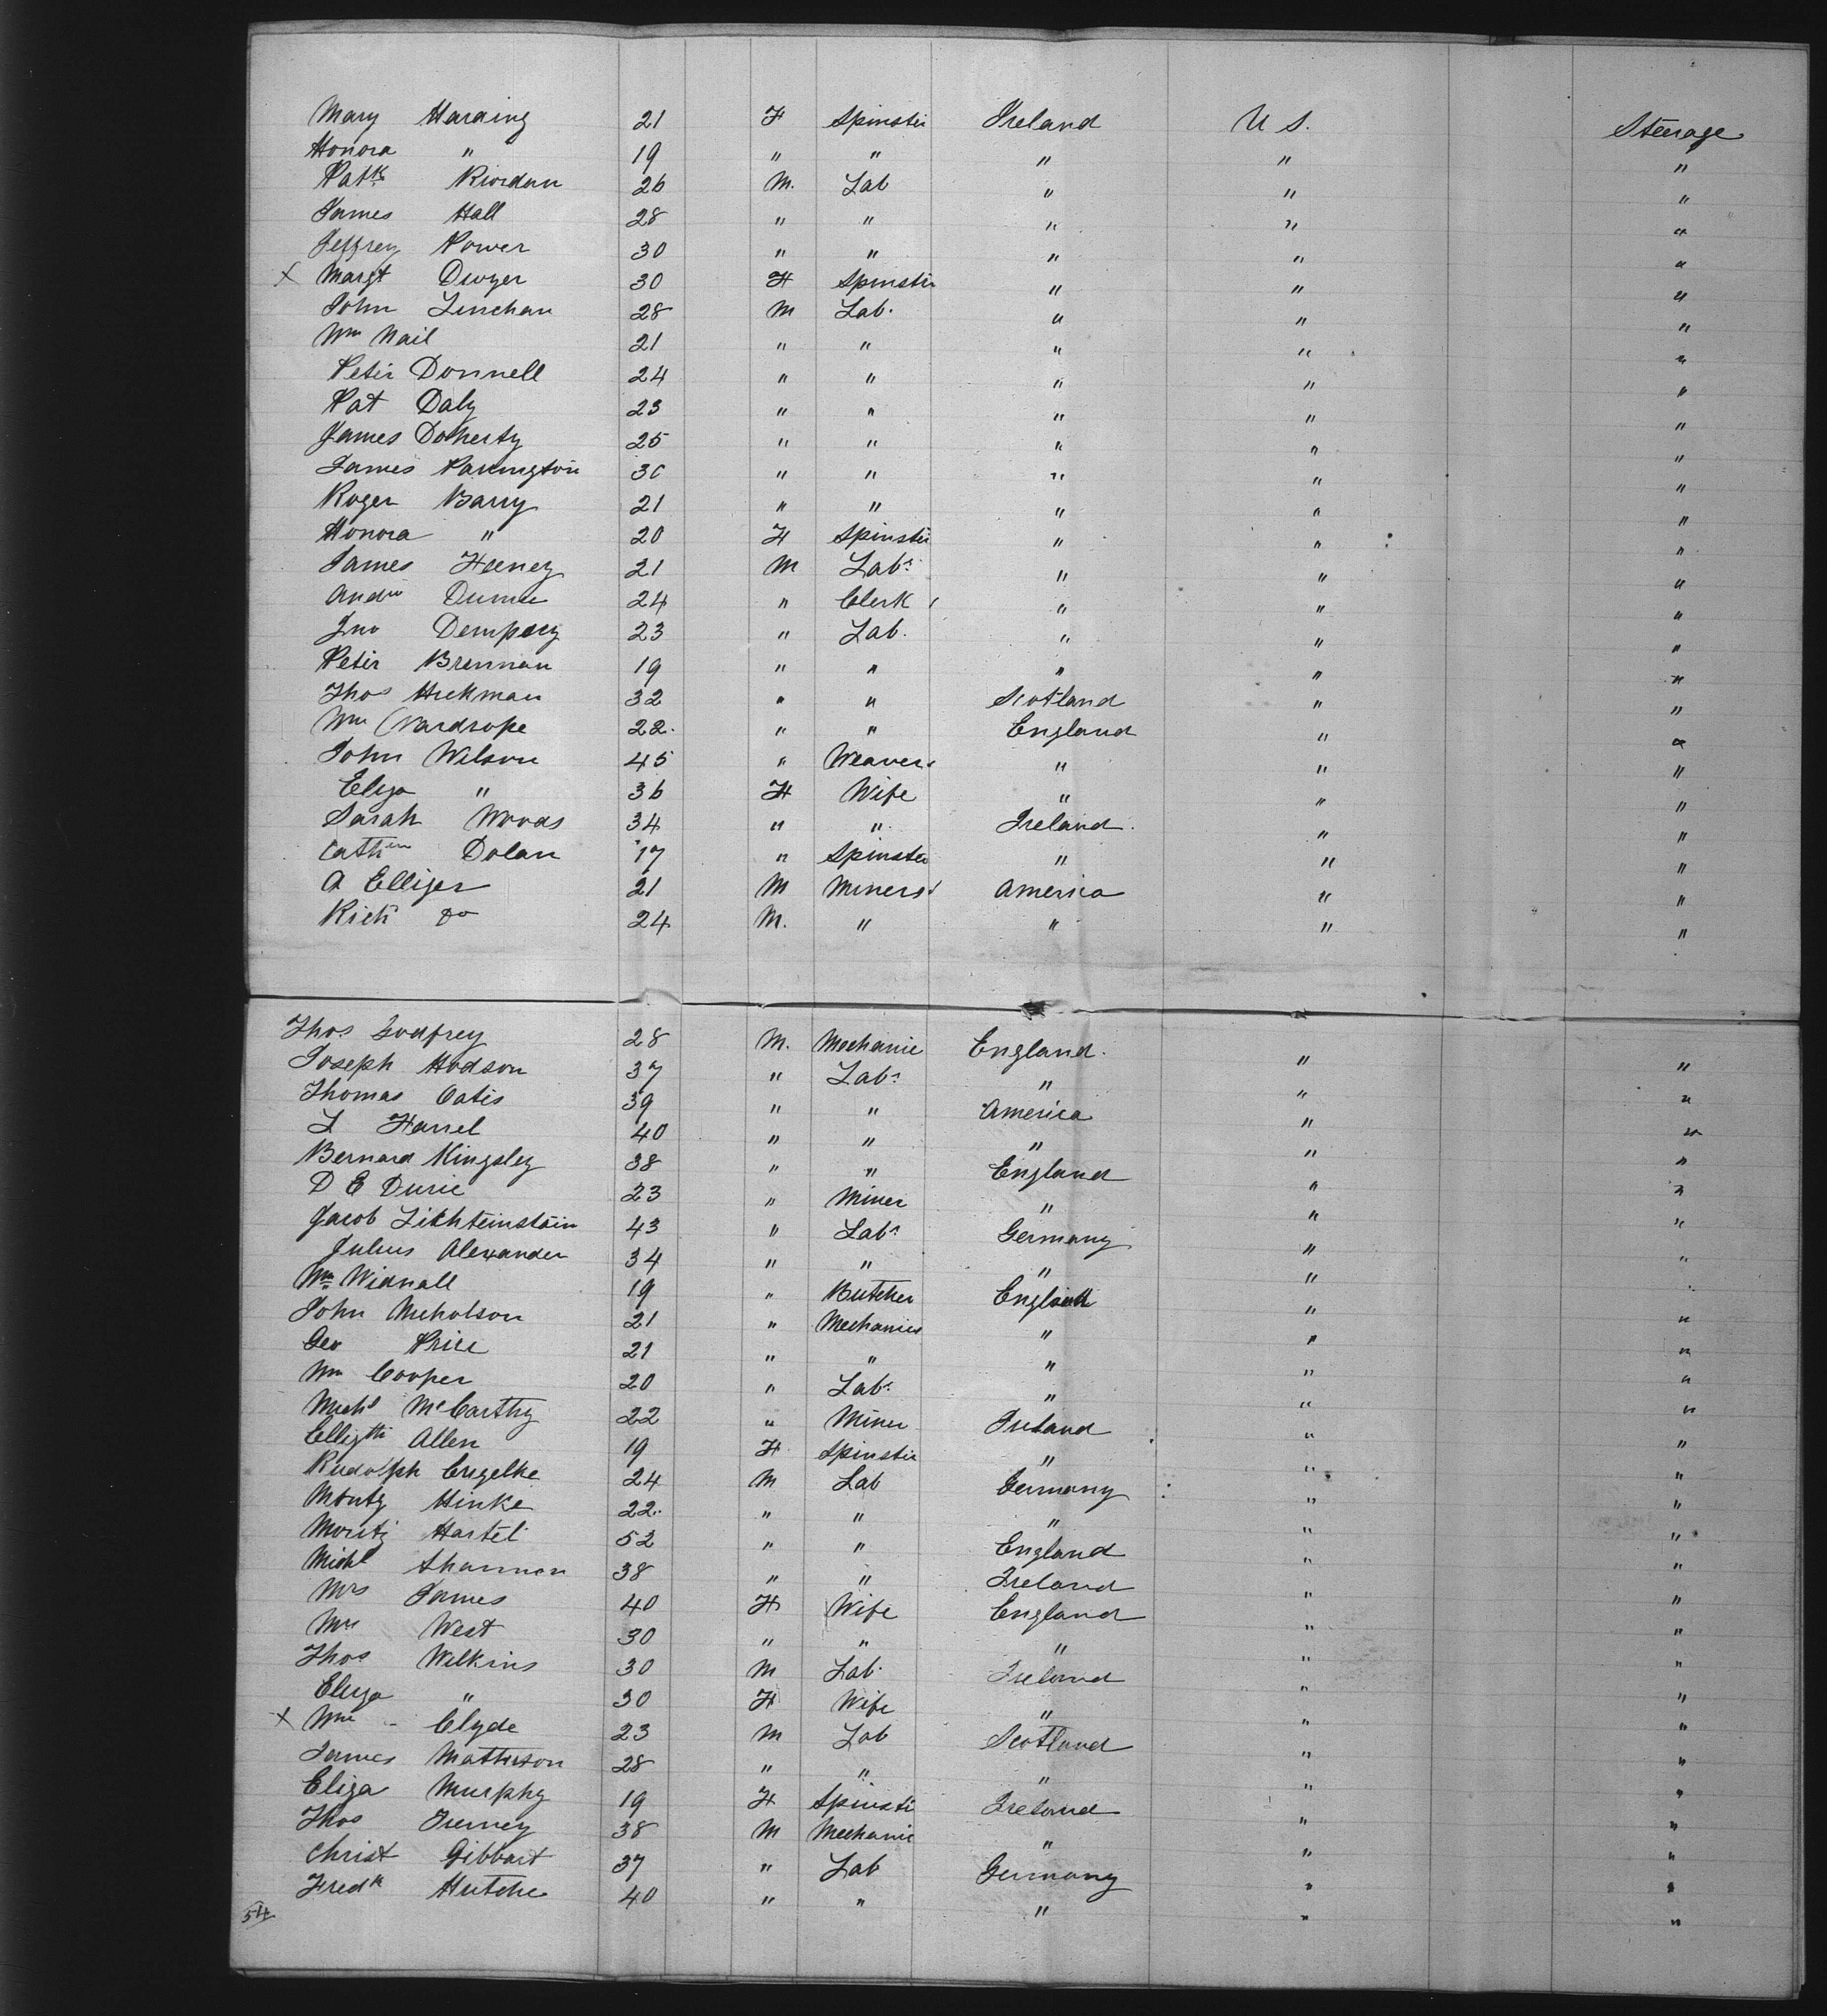 Mary Harding 21 F Spinster Ireland U S. Steerage
Honora " 19 " " " " "
Patk Riordan 26 M. Lab " " "
James Hall 28 " " " " "
Jeffrey Power 30 " " " " "
X Margt Dwyer 30 F Spinster " " "
John Linehan 28 M Lab. " " "
Wm Nail 21 " " " " "
Peter Donnell 24 " " " " "
Pat Daly 23 " " " " "
James Doherty 25 " " " " "
James Parington 30 " " " " "
Roger Barry 21 " " " " "
Honora " 20 F Spinster " " "
James Feeney 21 M Labr " " "
Andw 24 " Clerk " " "
Jno Dempsey 23 " Lab. " " "
Peter Brennan 19 " " " " "
Thos Hickman 32 " " Scotland " "
Wm Wardrope 22. " " England " "
John Wilson 45 " Weaver " " "
Eliza " 36 F Wife " " "
Sarah Woods 34 " " Ireland. " "
Cathne Dolan 17 " Spinster " " "
A Elliger 21 M Miners America " "
Richd Do 24 M. " " " "
Thos Godfrey 28 M. Mechanic England. " "
Joseph Hodson 37 " Labr " " "
Thomas Oates 39 " " America " "
L Harrel 40 " " " " "
Bernard Kingsley 38 " " England " "
D E Durie 23 " Miner " " "
Jacob Lichteinstein 43 " Labr Germany " "
Julius Alexander 34 " " " " "
Wm Widnall 19 " Butcher England "
John Nicholson 21 " Mechanics " " "
Geo Price 21 " " " " "
Wm Cooper 20 " Labr " " "
Michl McCarthy 22 " Miner Ireland " "
Ellizth Allen 19 F Spinster " " "
Rudolph Engelke 24 M Lab Germany " "
Montz Hinke 22. " " " " "
Moritz Hartel 52 " " England " "
Michl Shannon 38 " " Ireland " "
Mrs James 40 F Wife England " "
Mrs West 30 " " " " "
Thos Wilkins 30 M Lab. Ireland " "
Eliza " 30 F Wife " " "
X Wm - Clyde 23 M Lab Scotland " "
James Mathieson 28 " " " " "
Eliza Murphy 19 F Spinster Ireland " "
Thos Tierney 38 M Mechanic " " "
Christ Gibbart 37 " Lab Germany " "
Fredk Hutche 40 " " " " "
54